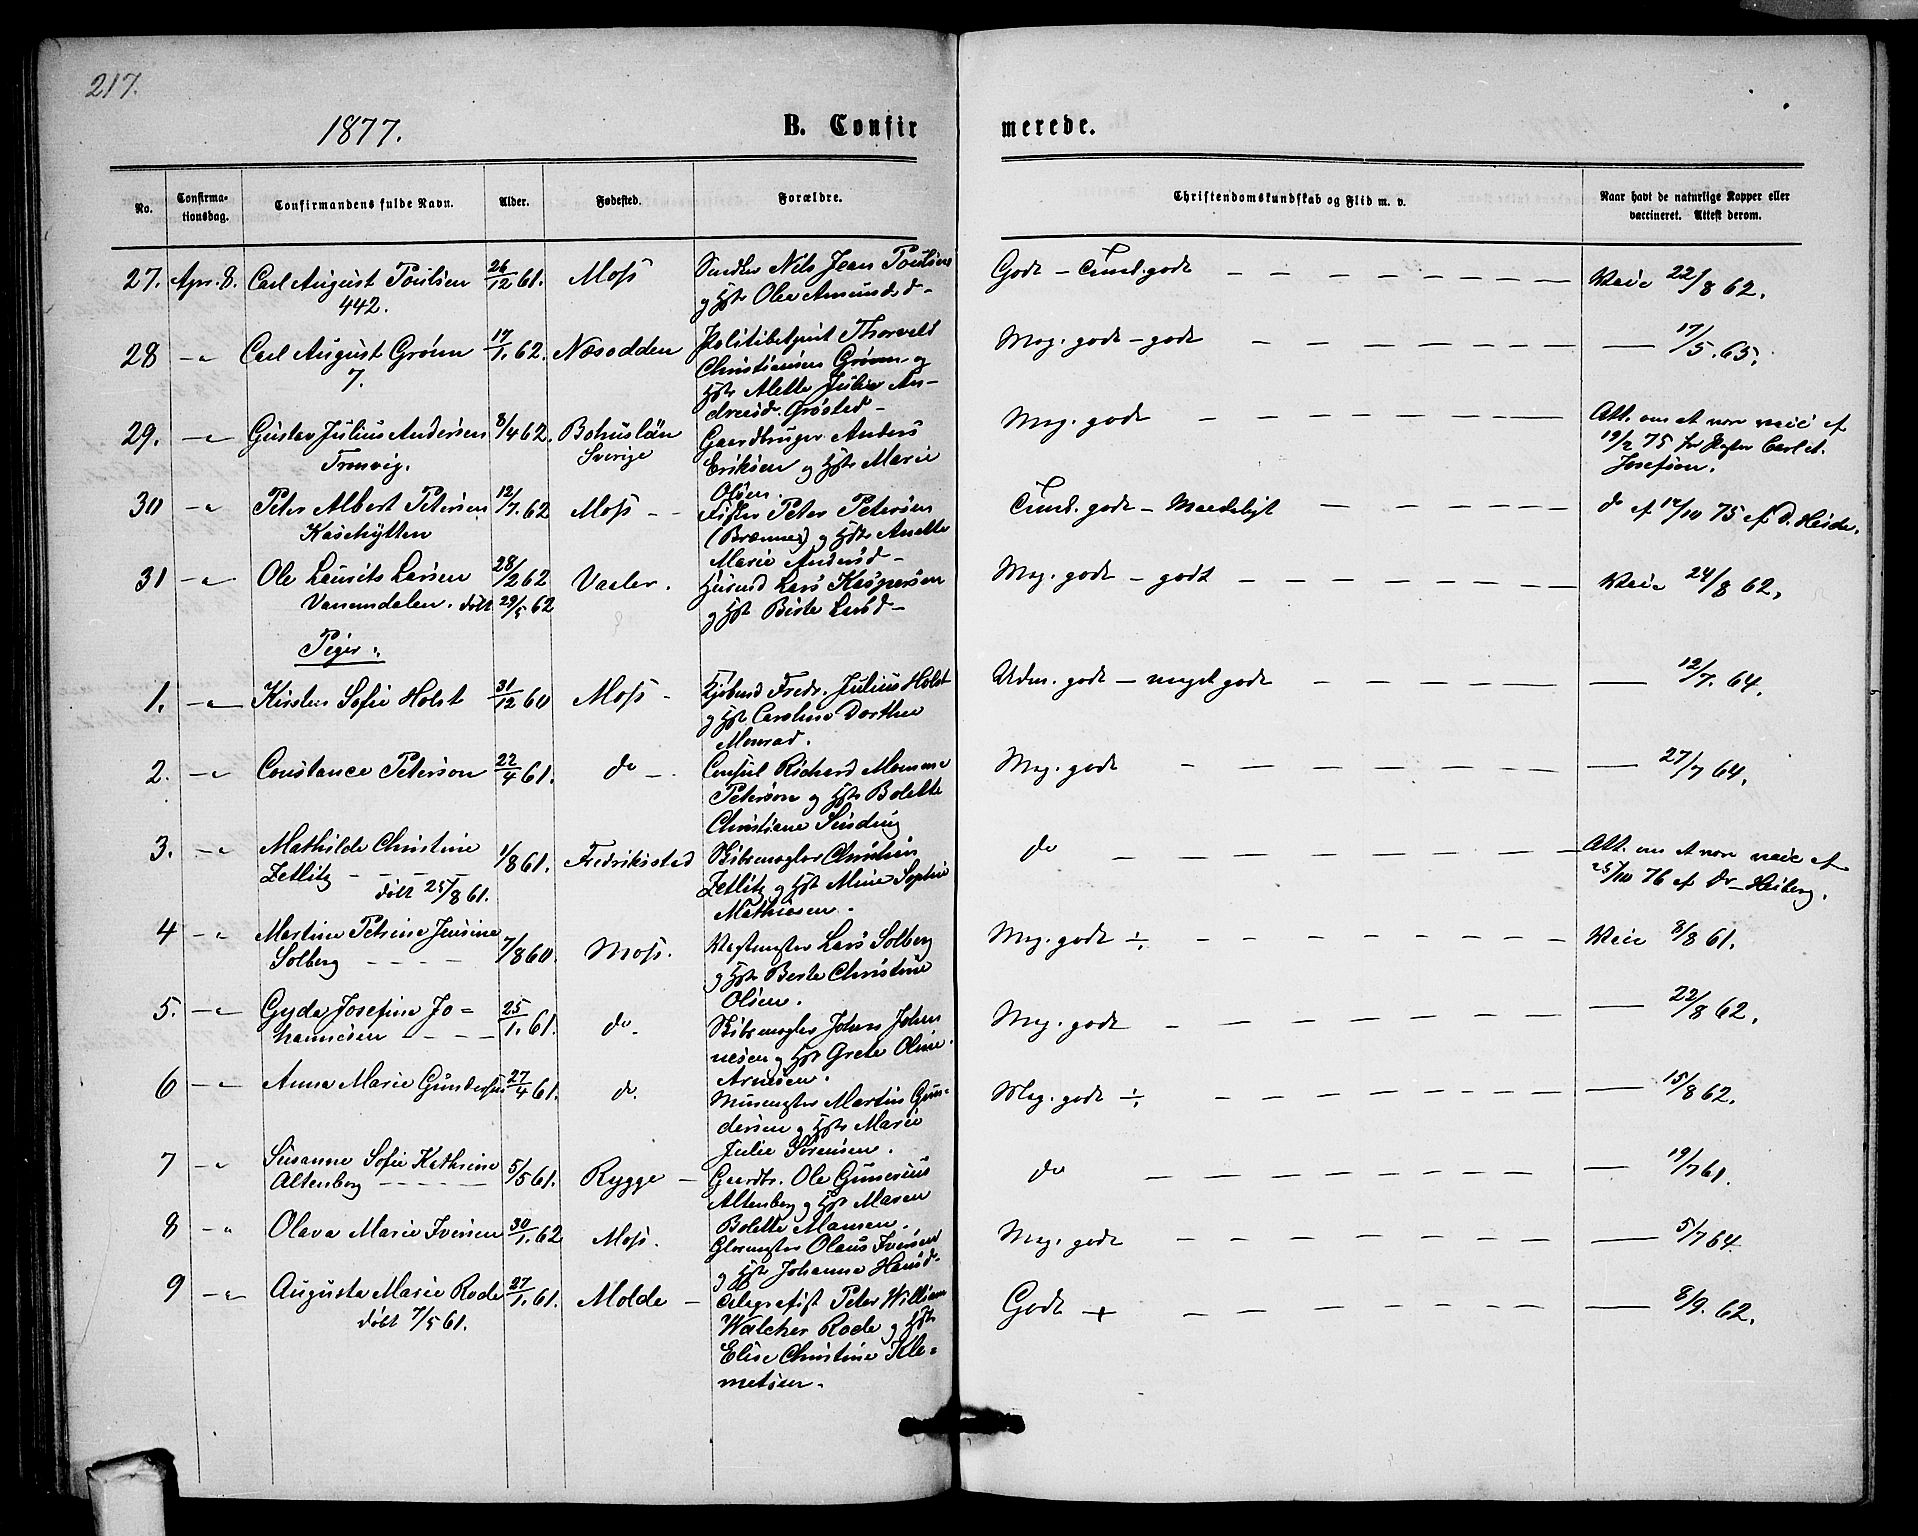 217.
1877.
B. Confir
merede.
No.
Confirma-
tionsdag.
Confirmandens fulde Navn.
Alder.
Fødested.
Forældre.
Christendomskundskab og Flid m. v.
Naar havt de naturlige Kopper eller
vaccineret. Attest derom.
27. Apr. 8. Carl August Poulsen 26/12 61. Moss Nils Jean Poulsen Godt - Temml. godt - - - - - - - - Vacc 22/8 62.
442. og Hstr Olea Amundsd-
28 -"- Carl August Grønn 17/1. 62. Næsodden Politibetjent Thorvald Meg. godt - godt - - - - - - - - 17/5. 65.
7. Christiansen Grønn og
Hstr Alette Julie An-
dreasd. Grøsted-
29. -"- Gustav Julius Andersen 8/4 62. Bohuslän Gaardbruger Anders Meg. godt - - - - - - - - Att. om at være vacc af
Tronvig. Sverige Eriksen og Hstr Marie 19/2 75 Carl A.
Olsen. Josefson.
30 -"- Peter Albert Petersen 12/7. 62 Moss - - Fisker Peter Petersen Temml. godt - Maadeligt - - - - - - do af 14/10 75 af D. Heide.
Kasehytten (Brænne) og Hstr Anette
Marie Andersd-
31 -"- Ole Laurits Larsen 28/2 62 Vaaler. Husmd Lars Kaspersen Meg. godt - godt - - - - - - - - Vacc 24/8 62.
Vanemdalen. døbt 29/5 62 og Hstr Berte Larsd-
Piger.
1. -"- Kirsten Sofie Holst 31/12 60 Moss - Kjøbmd Fredr. Julius Holst Udm. godt - meget godt - - - - - - 12/7. 64.
og Hstr Caroline Dorthea
Monrad.
2. -"- Constance Peterson 22/4 61. do -. Consul Richard Momme Meg. godt - - - - - - - - 27/7 64.
Peterson og Hstr Bolette
Christiane Sinding
3. -"- Mathilde Christine 1/8 61. Fredrikstad Skibsmægler Christian do - - - - - - - - Att. om at være vacc af
Zetlitz - - - - Zetlitz og Hstr Mine Sophie 25/10 76 af Dr Heiberg.
døbt 25/8 61. Mathiesen.
4 -"- Martine Petrine Jensine 7/8 60 Moss. Vagtmester Lars Solberg Meg. godt ÷ - - - - - - - - Vacc 8/8 61.
Solberg - - - - og Hstr Berte Christine
Olsen.
5. -"- Gyda Josefine Jo= 25/1. 61. do. Skibsmægler Johan Johan Meg. godt - - - - - - - - 22/8 62.
hannesen - - - - nesen og Hstr Grete Oline
Arnesen.
6 -"- Anna Marie Gundersen 27/4 61. do. Murmester Martin Gun- Meg. godt ÷ - - - - - - - - 15/8 62.
dersen og Hstr Marie
Julie Sørensen.
7 -"- Susanne Sofie Kathrine 5/5 61. Rygge - Gaardbr. Ole Gunerius do - - - - - - - - 19/7 61.
Altenborg - - - - - Altenborg og Hstr Maren
Bolette Mansen.
8 -"- Olava Marie Iversen 30/1. 62 Moss. Glarmester Olaus Iversen Meg. godt - - - - - - - - 5/7 64
og Hstr Johanne Hansd-
9 -"- Augusta Marie Rode 27/1. 61. Molde - Telegrafist Peter William Godt + - - - - - - - - 8/9. 62.
døbt 7/5 61. Walcher Rode og Hstr
Elise Christine Kle=
metsen.